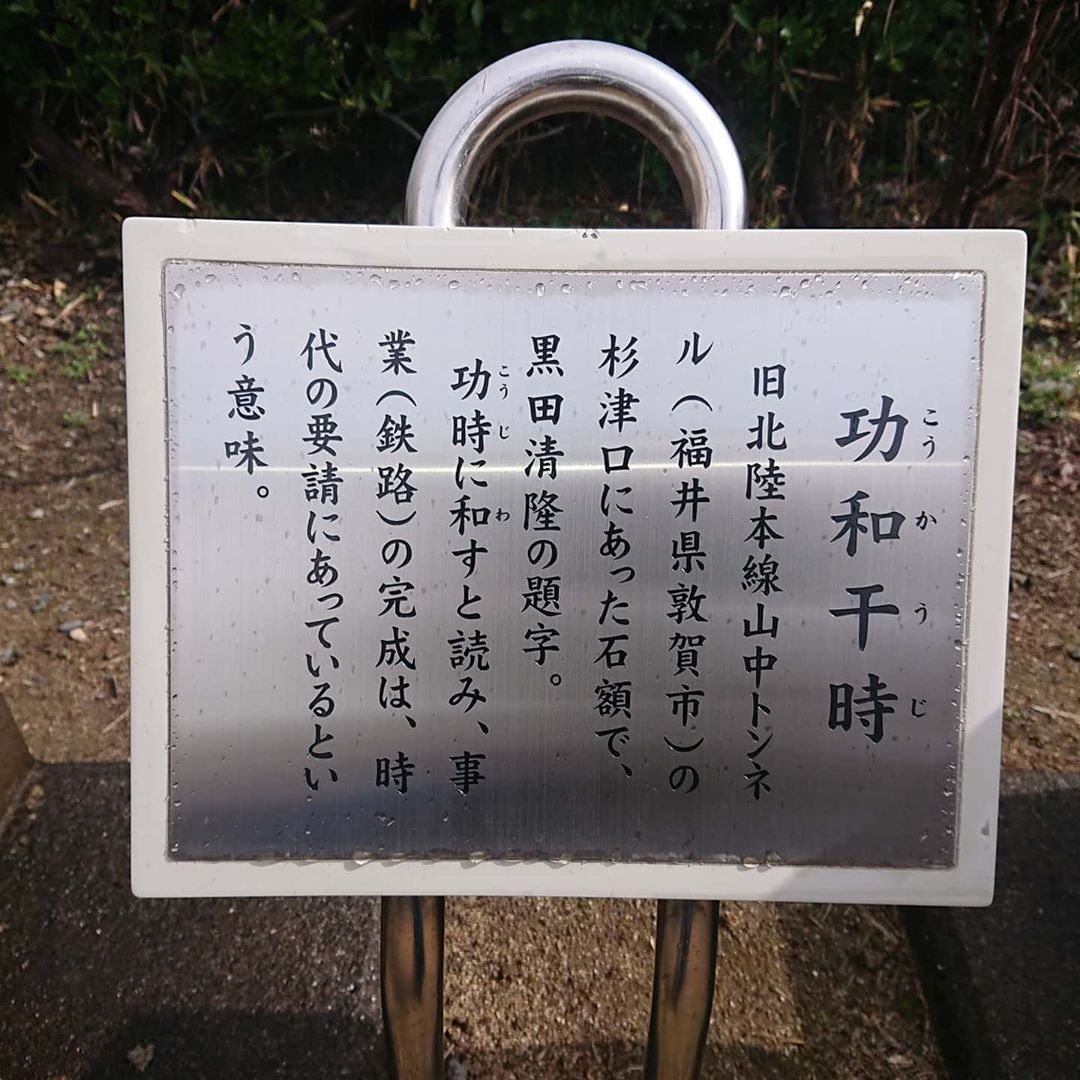 功和干時
こうかうじ
旧北陸本線山中トンネ
ル（福井県敦賀市）の
杉津口にあった石額で、
黒田清隆の題字。
功時に和すと読み、事
こうじわ
業（鉄路）の完成は、時
代の要請にあっているとい
う意味。